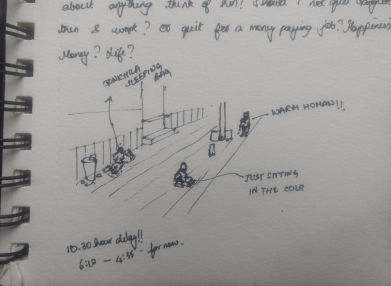 about anything think of him? Should I not quit
this I want? Or quit for a money paying job? Happiness
Money? Life?
SLEEPING
BAG
WARM HUMAN!!
JUST SITTING
IN THE COLD
10.30 hour delay!!
6:12 — 4:35 - for now.